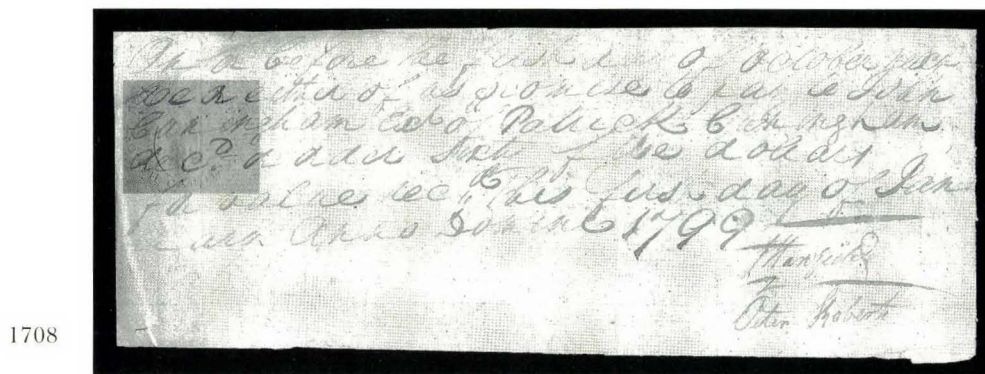 On or before the first day of October next
we or either of us promise to pay to John
Cunningham Exd of Patrick Cunningham
decd. a dollars
for value recd this first day of Jan
Anno Domini 1799
Peter Roberts
1708